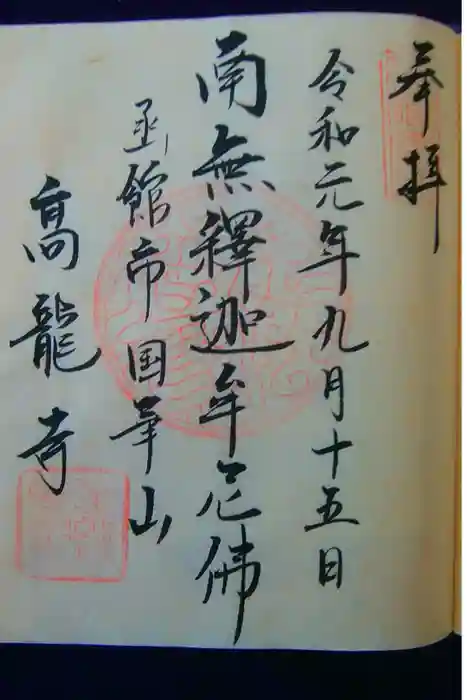 奉拝
令和元年九月十五日
南無釋迦牟尼佛
函館市国華山
高龍寺